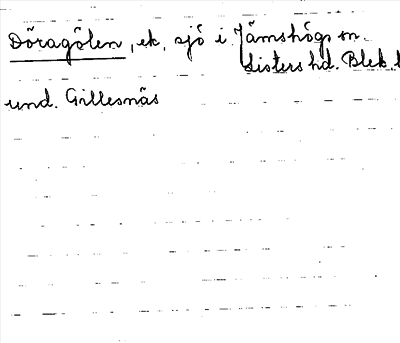 Döragölen, ek, sjö i Jämshögs sn.
Listers hd. Blek. l
und. Gillesnäs